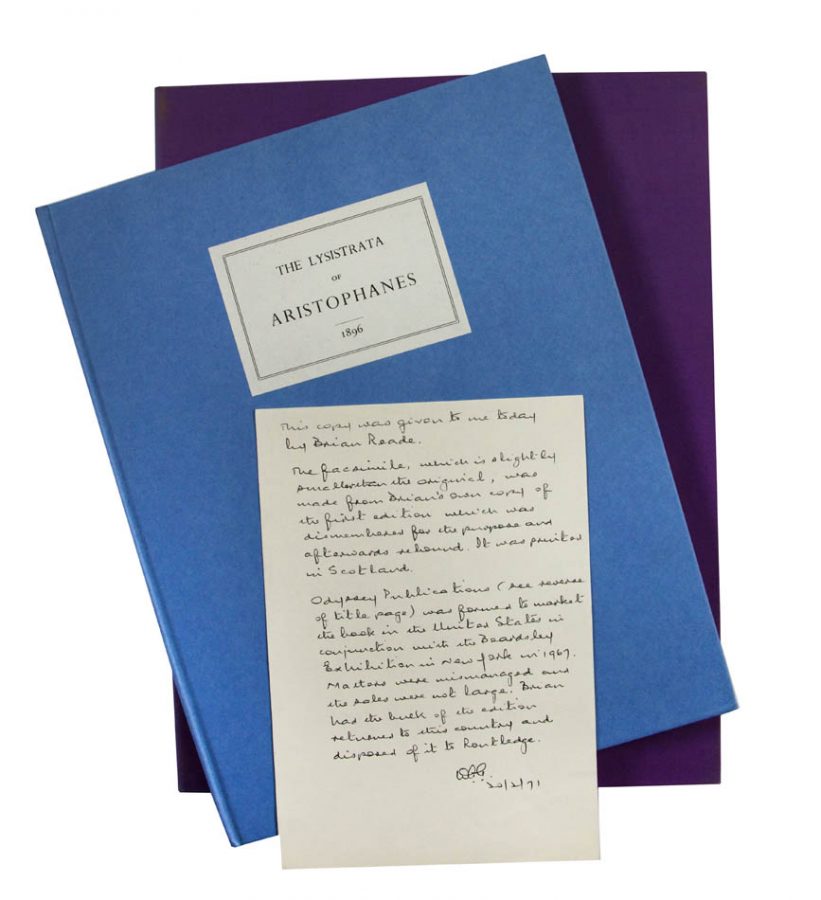 THE LYSISTRATA
OF
ARISTOPHANES
1896
This copy was given to me today
by Brian Reade.
The facsimile, which is slightly
smaller than the original, was
made from Brian's own copy of
the first edition which was
dismembered for the purpose and
afterwards rebound. It was printed
in Scotland.
Odyssey Publications (see reverse
of title page) was formed to market
the book in the United States in
conjunction with the Beardsley
Exhibition in New York in 1967.
Matters were mismanaged and
the sales were not large. Brian
has the bulk of the edition
returned to this country and
disposed of it to Routledge.
20/2/71